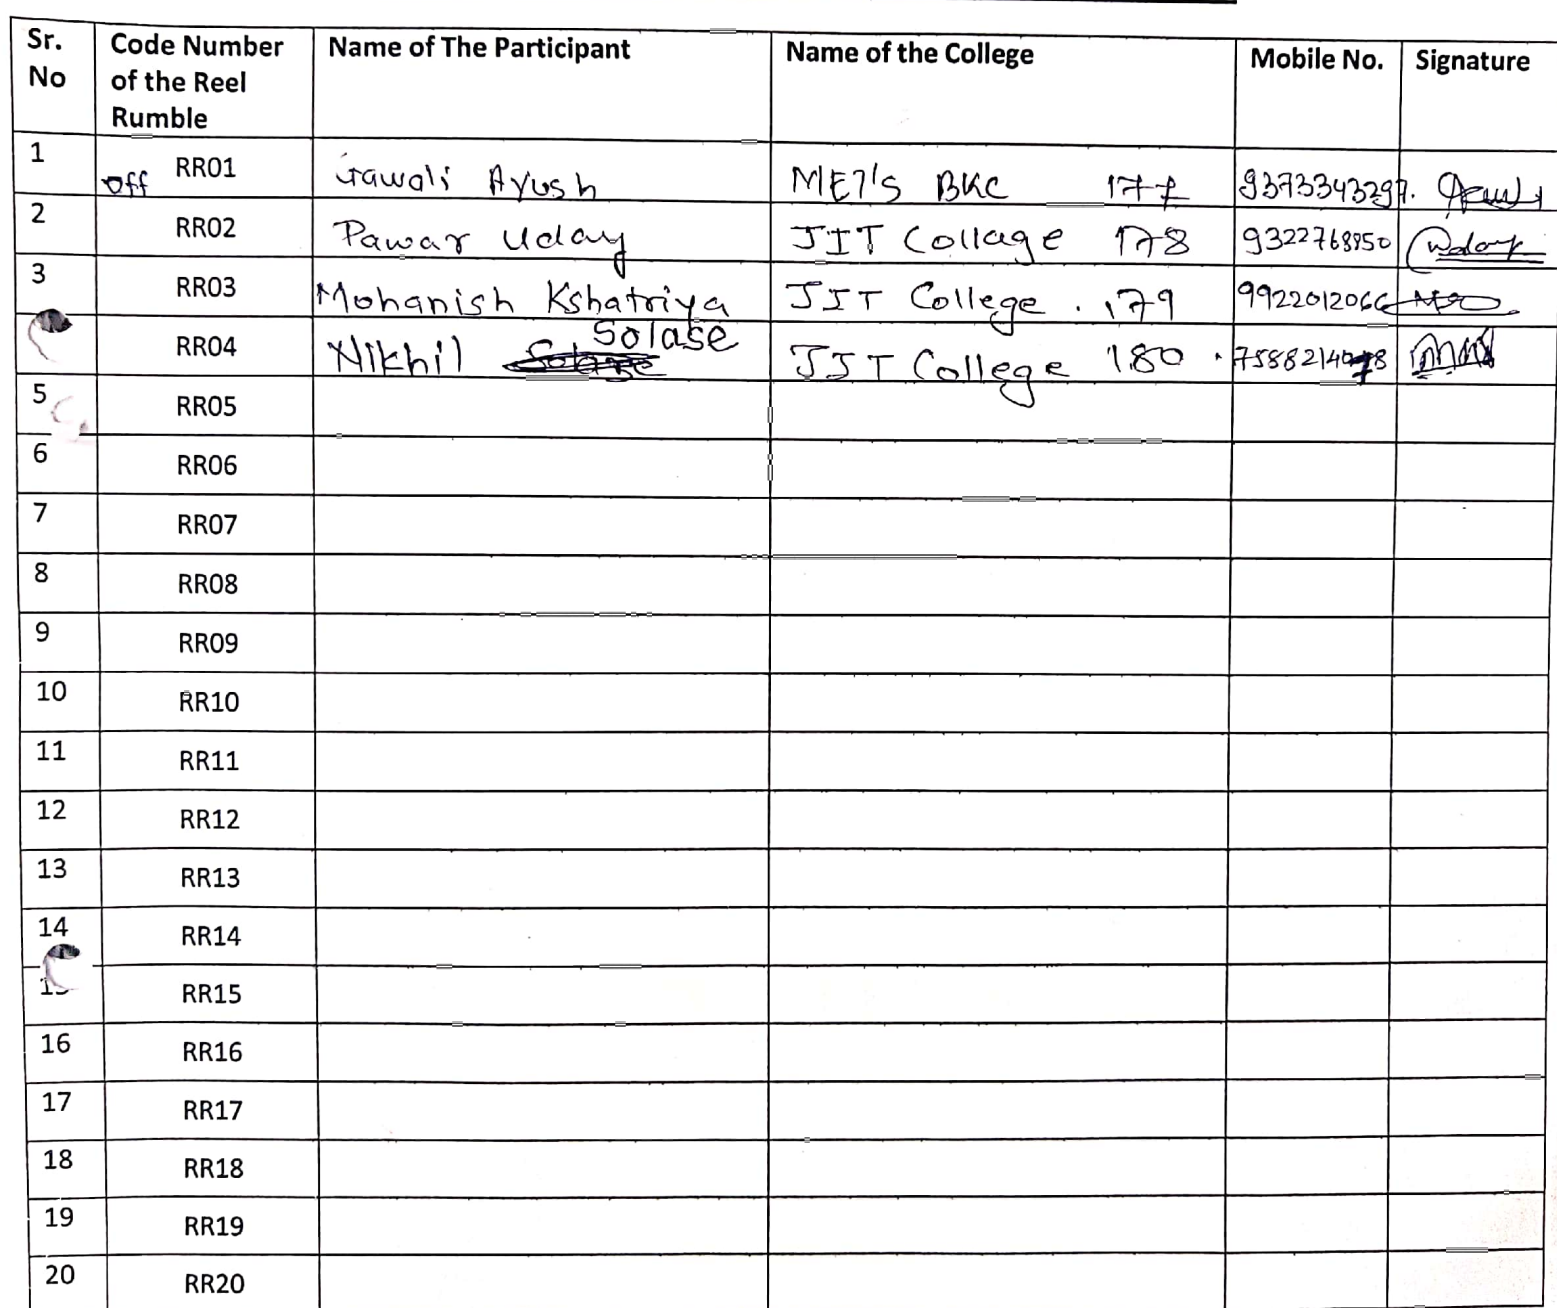 Sr. No Code Number of the Reel Rumble Name of The Participant Name of the College Mobile No. Signature
1 off RR01 Gawali Ayush MET's BKC 177 9373343297.
2 RR02 Pawar Uday JIT Collage 178 9322768950 Uday
3 RR03 Mohanish Kshatriya JIT College . 179 9922012066
RR04 Nikhil Solase JIT College 180 .
5 RR05
6 RR06
7 RR07
8 RR08
9 RR09
10 RR10
11 RR11
12 RR12
13 RR13
14 RR14
15 RR15
16 RR16
17 RR17
18 RR18
19 RR19
20 RR20